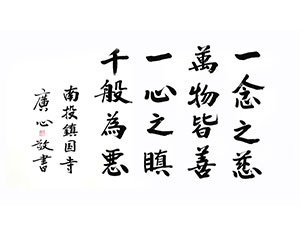 一念之慈
萬物皆善
一心之瞋
千般為惡
南投鎮國寺
廣心敬書